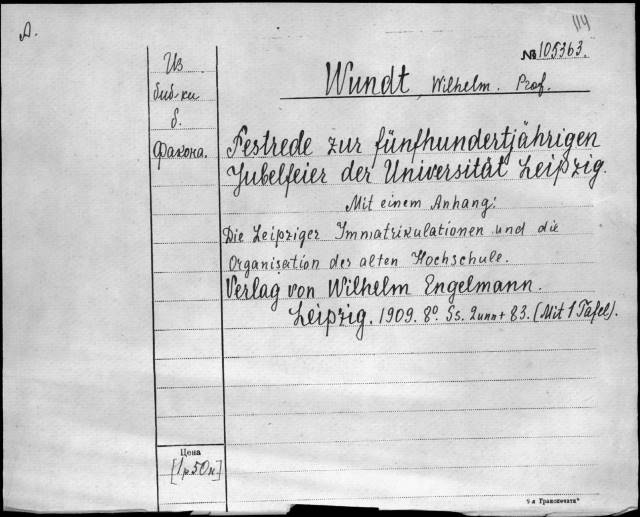 A.
114
№ 105363.
Из
биб-ки
б.
Фалона.
Wundt, Wilhelm. Prof.
Festrede zur fünfhundertjährigen
Jubelfeier der Universität Leipzig.
Mit einem Anhang:
Die Leipziger Immatrikulationen und die
Organisation der alten Hochschule.
Verlag von Wilhelm Engelmann.
Leipzig. 1909. 8º. Ss. 2unn + 83. (Mit 1 Tafel).
Цена
[1 р 50 к]
"я Транспечати"